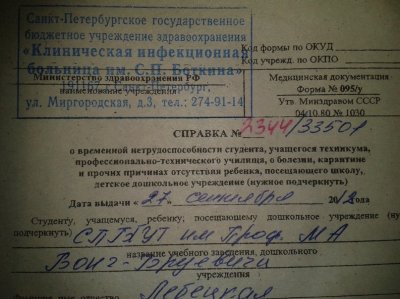 Санкт-Петербургское государственное
бюджетное учреждение здравоохранения
«Клиническая инфекционная
больница им. С.П. Боткина»
Министерство здравоохранения РФ
191167, Санкт-Петербург,
наименование учреждения
ул. Миргородская, д.3, тел.: 274-91-14
Код формы по ОКУД
Код учрежд. по ОКПО
Медицинская документация
Форма № 095/у
Утв. Минздравом СССР
04/10.80 № 1030
СПРАВКА № 2344/33501
о временной нетрудоспособности студента, учащегося техникума,
профессионально-технического училища, о болезни, карантине
и прочих причинах отсутствия ребенка, посещающего школу,
детское дошкольное учреждение (нужное подчеркнуть)
Дата выдачи «27» сентября 2012 г.
Студенту, учащемуся, ребенку, посещающему дошкольное учреждение (ну
подчеркнуть) СПбГУТ им проф. МА
название учебного заведения, дошкольного
Бонч-Бруевича
учреждения
Лебецкая